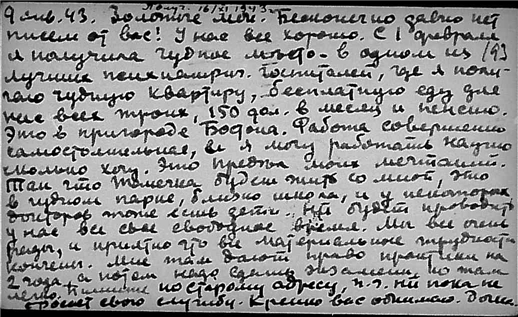 Получ. 16/XI 1943 г.
9 янв. 43. Золотые мои. Бесконечно давно нет
писем от вас! У нас все хорошо. С 1 февраля
я получила чудное место - в одном из
лучших психиатрич. госпиталей, где я полу-
чаю чудную квартиру, бесплатную еду для
нас всех троих, 150 дол. в месяц и пенсию.
Это в пригороде Бостона. Работа совершенно
самостоятельная, и я могу работать научно
сколько хочу. Это предел моих мечтаний.
Так что Томочка будет жить со мной, это
в чудном парке, близко школа, и у некоторых
докторов тоже есть дети. будет проводить
у нас все свое свободное время. Мы все очень
рады, и приятно что все материальные трудности
кончены. Мне там дают право практики на
2 года а потом надо сдать экзамены но там
легко. Пишите по старому адресу, п.ч. пока не
бросает свою службу. Крепко вас обнимаю.